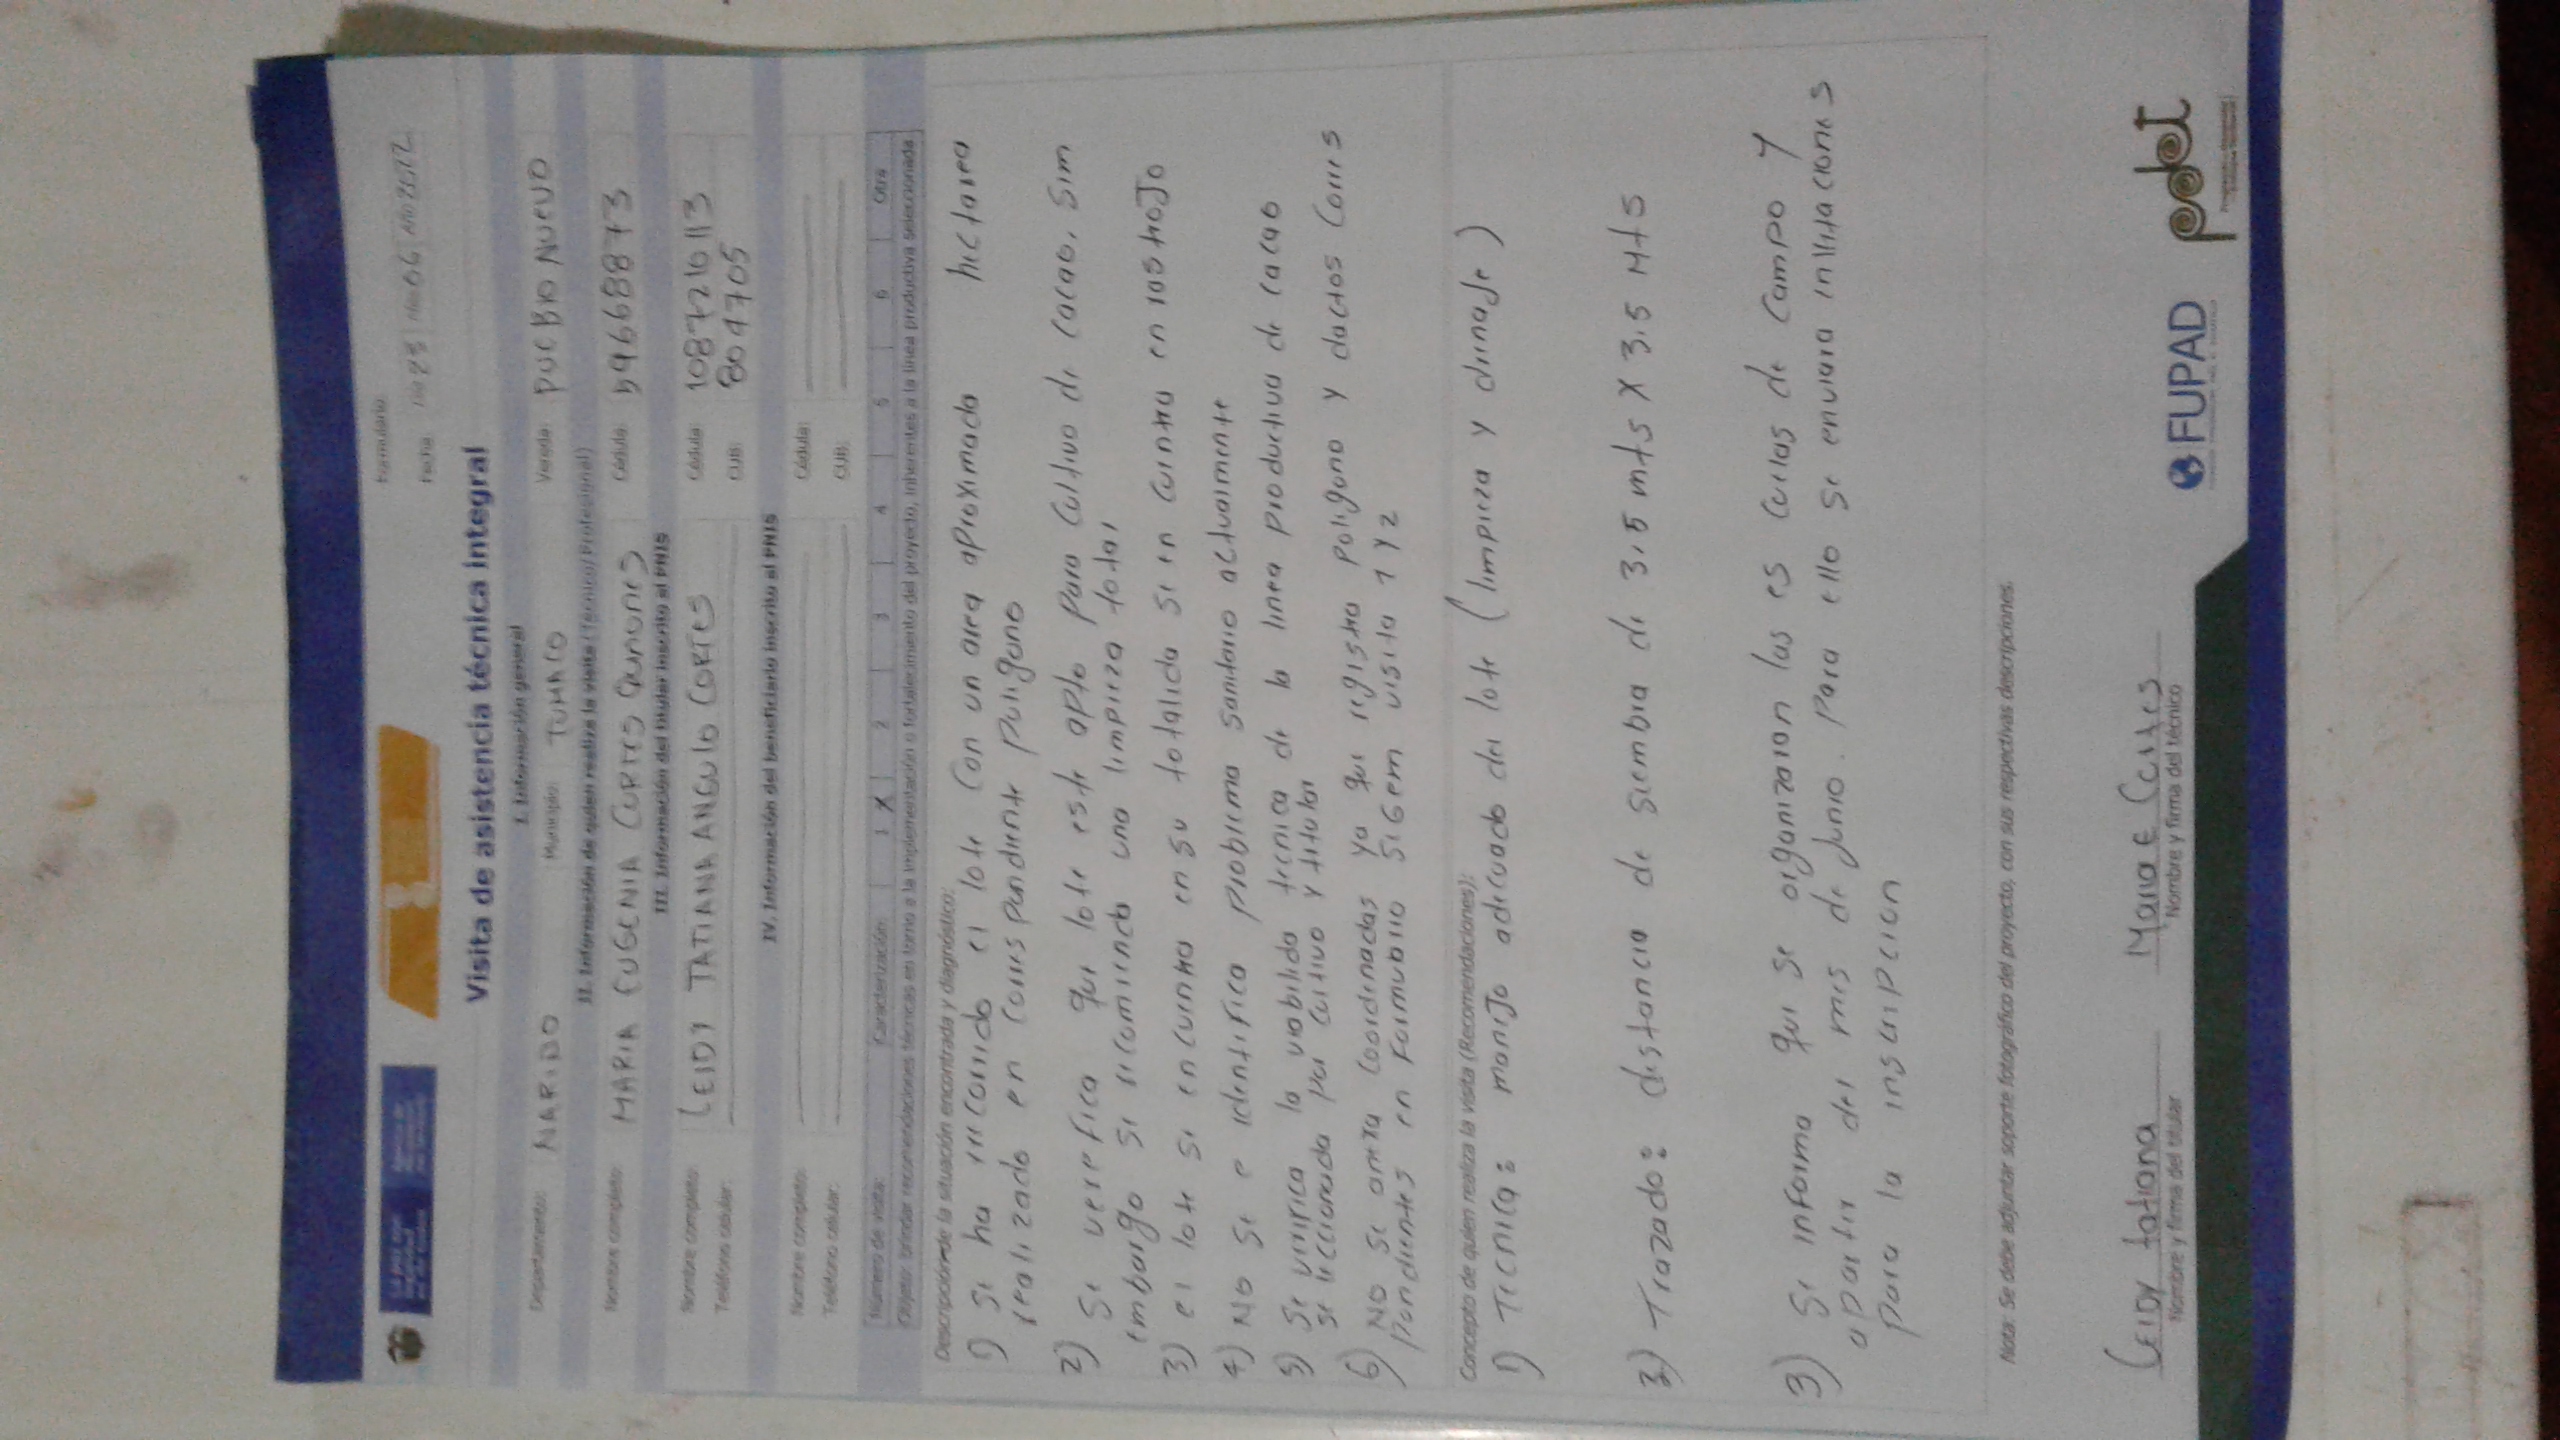 Formulario:
Fecha: Día 23 Mes 06 Año 2022
Visita de asistencia técnica integral
I. Información general
Departamento: NARIÑO Municipio: TUMACO Vereda: PUEBLO NUEVO
II. Información de quien realiza la visita (Técnico/Profesional)
Nombre completo: MARIA EUGENIA CORTES QUIÑONES Cédula: 59668873
III. Información del titular inscrito al PNIS
Nombre completo: LEIDY TATIANA ANGULO CORTES Cédula: 1087216113
Teléfono celular: CUB: 804705
IV. Información del beneficiario inscrito al PNIS
Nombre completo: Cédula:
Teléfono celular: CUB:
Número de visita: Caracterización: 1 X 2 3 4 5 6 Otra
Objeto: brindar recomendaciones técnicas en torno a la implementación o fortalecimiento del proyecto, inherentes a la línea productiva seleccionada
Descripción de la situación encontrada y diagnóstico:
1) Se ha recorrido el lote con un area aproximada hectarea
realizado en correspondiente poligono
2) Se verefica que lote este apto para cultivo de cacao, sim
embargo se recomienda una limpieza total
3) el lote se encuentra en su totalida se en cuentra en rastrojo
4) No se e identifica problema sanitario actualmente
5) Se verifica la viabilida tecnica de la linea productiva de cacao
seleccionada por cultivo y titular
6) No se amza coordenadas ya que registra poligono y dactos corres
pondientes en formulario SIGEM visita 1 y 2
Concepto de quien realiza la visita (Recomendaciones):
1) Tecnica: manejo adecuado del lote (limpieza y drenaje)
2) Trazado: distancia de siembra de 3.5 mts X 3.5 Mts
3) Se informa que se organizaran las es cuelas de campo y
apartir del mes de Junio. para ello se enviara invitaciones
para la inscripcion
Nota: Se debe adjuntar soporte fotográfico del proyecto, con sus respectivas descripciones.
Leidy tatiana
Nombre y firma del titular
Maria E Cortes
Nombre y firma del técnico
FUPAD
pdet